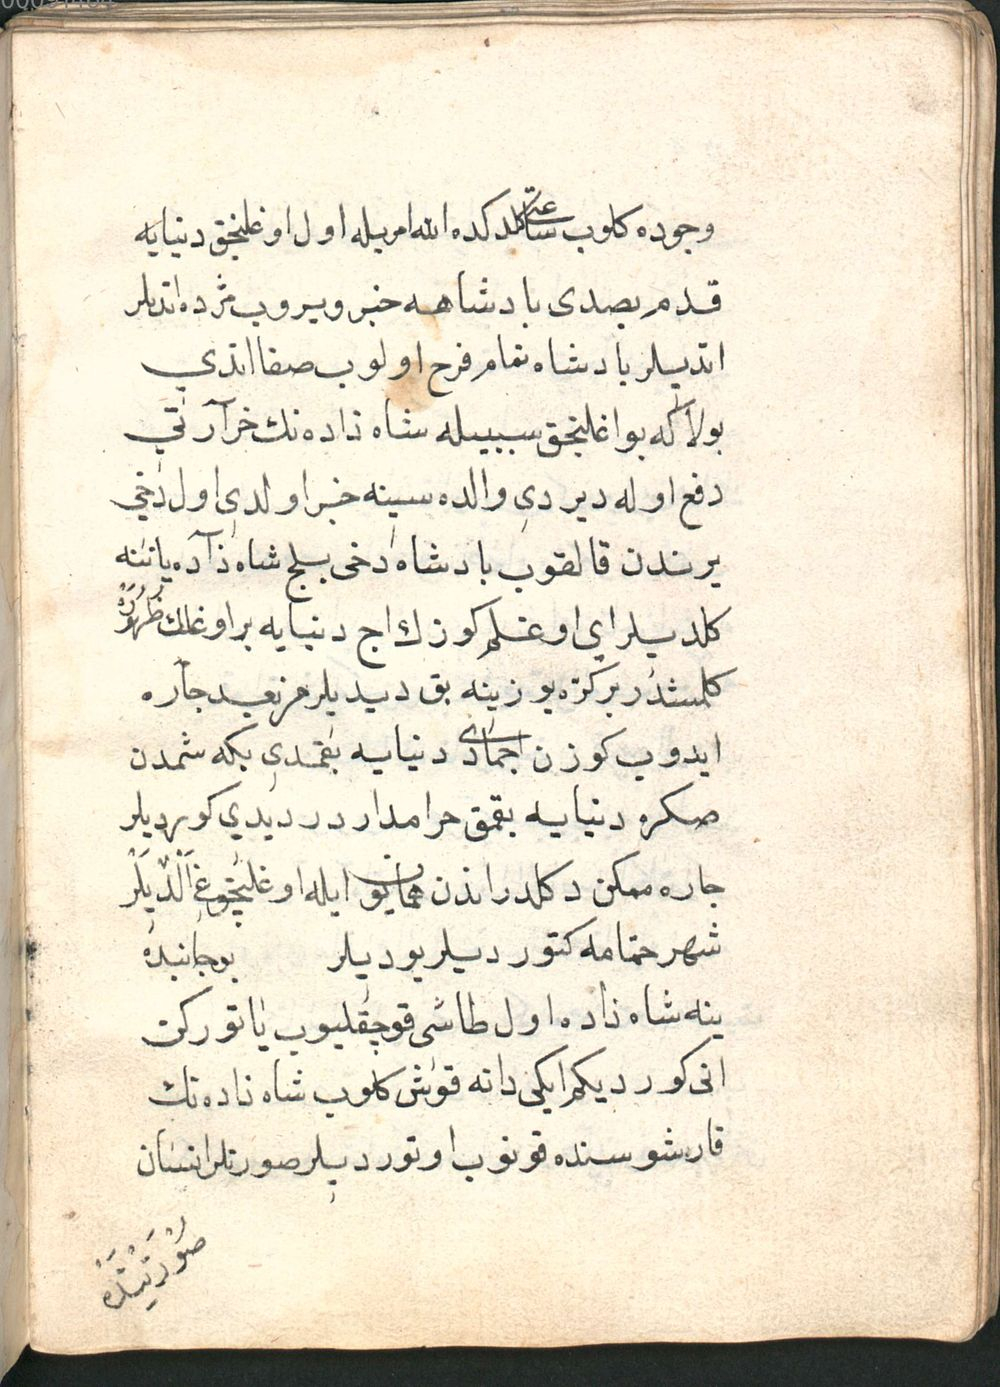 وجوده كلوب ساعتى كلدكده الله امريله اول اوغلنجق دنيايه
قدم بصدى بادشاهه خبر ويروب مژده اتديلر
اتديلر بادشاه تمام فرح اولوب صفا اتدي
بولاكه بو اغلنجق سببيله شاه زاده نك خرارتي
دفع اوله ديردي والده سينه خبر اولدي اول دخي
يرندن قالقوب بادشاه دخى بلج شاه زاده ياننه
كلديلر اي اوغلم كوزك اج دنيايه بر اوغلك ظهوره
كلمشدر بر كره يوزينه بق ديديلر هر نه جاره
ايدوب كوزن اجمادى دنيايه بقمدي بكه شمدن
صكره دنيايه بقمق حرامدار در ديدي كورديلر
جاره ممكن دكلدر اندن همايون ايله اوغلنجوغى الديلر
شهر ختامه كتورديلر يوديلر بو جانبده
ينه شاه زاده اول طاشى قوجقليوب ياتوركن
انى كورديكم ايكى دانه قوش كلوب شاه زاده نك
قارشوسنده قونوب اوتورديلر صورتلر انسان
صورتينده